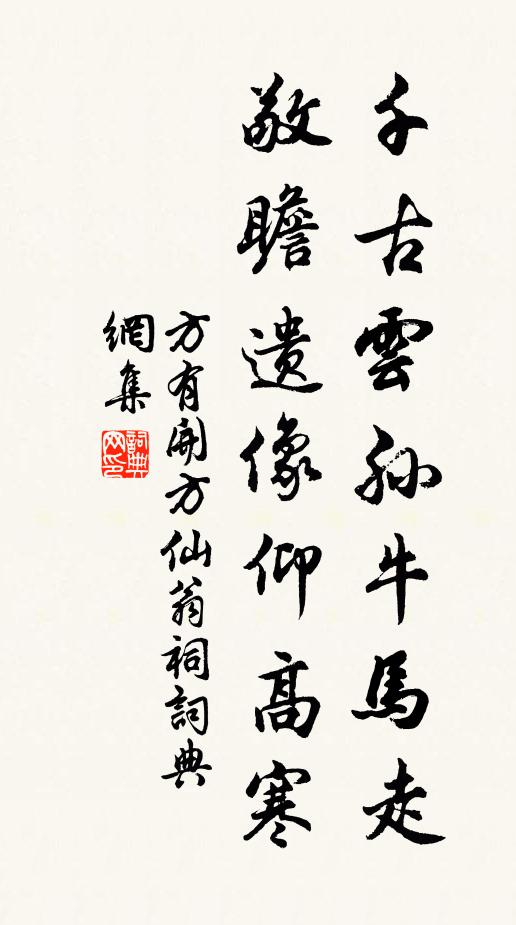 千古雲孫牛馬走
敬瞻遺像仰高寒
方有開方仙翁祠詞典
網集
詞典网印